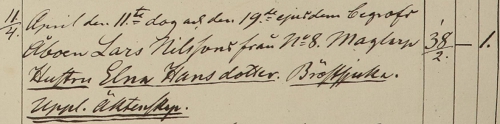 11/4. April den 11te dog och den 19de ejusdem begrofs
Åboen Lars Nilssons fru No 8. Maglarp 38/2. — 1.
Hustru Elna Hansdotter. Bröstsjuka.
Uppl. Äktenskap.